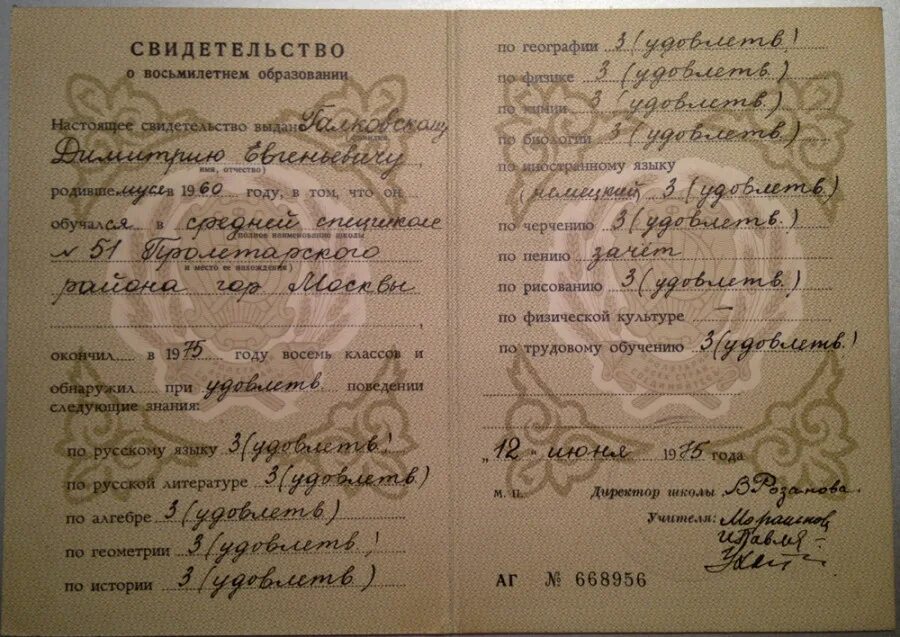 СВИДЕТЕЛЬСТВО
о восьмилетнем образовании
Настоящее свидетельство выдано Галковскому
фамилия,
Димитрию Евгеньевичу,
имя, отчество)
родившемуся в 1960 году, в том, что он
обучался в средней спецшколе
(полное наименование школы
N 51 Пролетарского
и место ее нахождения)
района гор Москвы
,
окончил в 1975 году восемь классов и
обнаружил при удовлетв. поведении
следующие знания:
по русскому языку 3 (удовлетв.)
по русской литературе 3 (удовлетв.)
по алгебре 3 (удовлетв.)
по геометрии 3 (удовлетв.)
по истории 3 (удовлетв.)
по географии 3 (удовлетв.)
по физике 3 (удовлетв.)
по химии 3 (удовлетв.)
по биологии 3 (удовлетв.)
по иностранному языку
(немецкий) 3 (удовлетв.)
по черчению 3 (удовлетв.)
по пению зачёт
по рисованию 3 (удовлетв.)
по физической культуре —
по трудовому обучению 3 (удовлетв.)
„12" июня 1975 года
М. П. Директор школы В Розанова
Учителя:
АГ № 668956